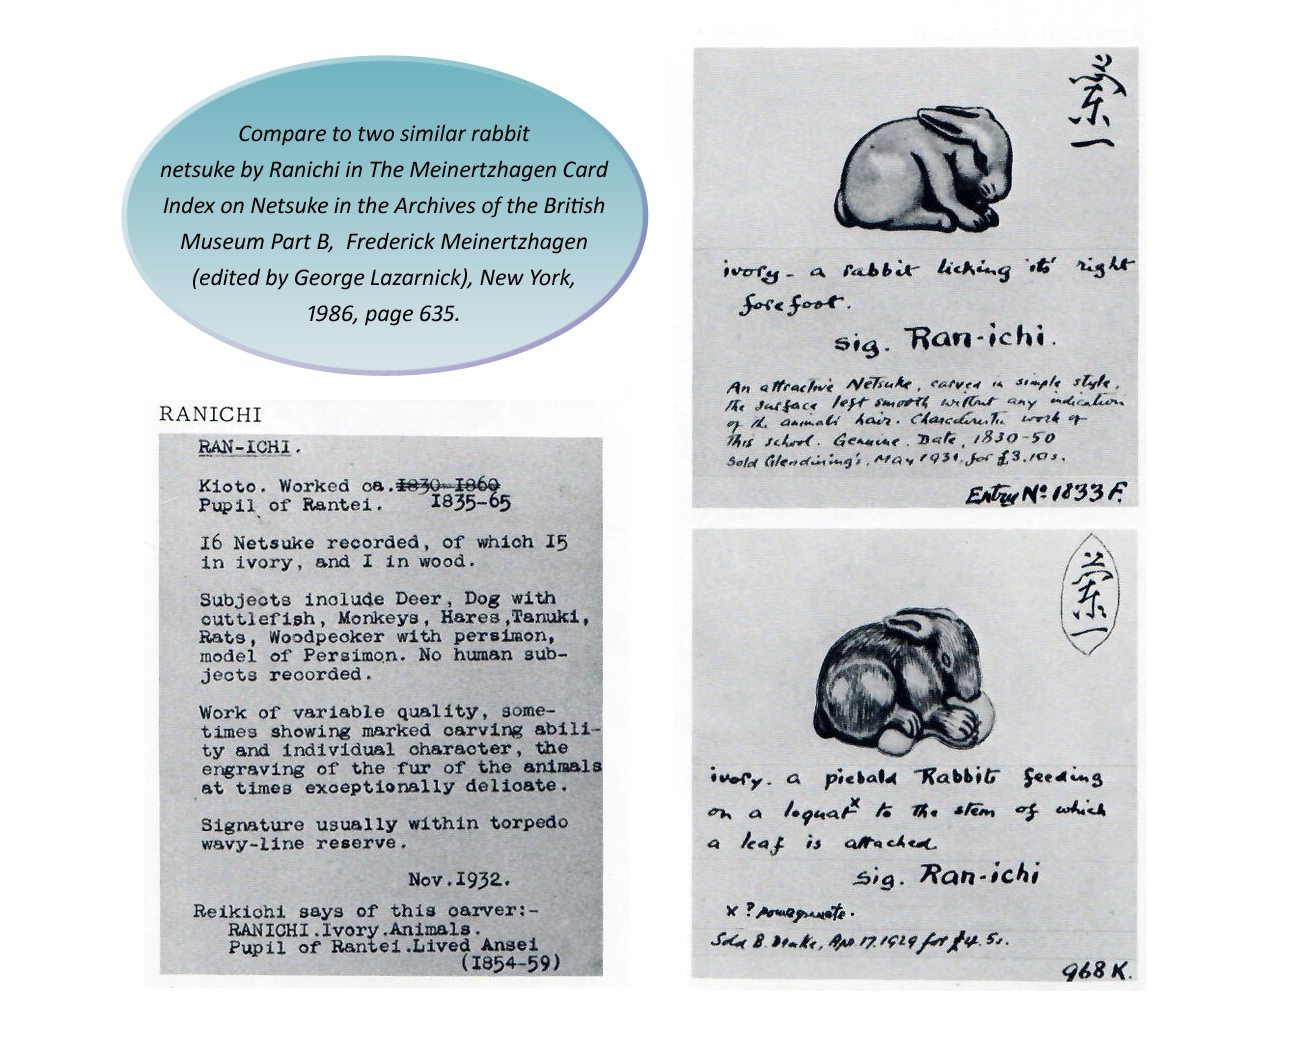 Compare to two similar rabbit
netsuke by Ranichi in The Meinertzhagen Card
Index on Netsuke in the Archives of the British
Museum Part B, Frederick Meinertzhagen
(edited by George Lazarnick), New York,
1986, page 635.
RANICHI
RAN-ICHI.
Kioto. Worked ca. 1830-1860
Pupil of Rantei. 1835-65
16 Netsuke recorded, of which 15
in ivory, and I in wood.
Subjects include Deer, Dog with
cuttlefish, Monkeys, Hares,Tanuki,
Rats, Woodpecker with persimon,
model of Persimon. No human sub-
jects recorded.
Work of variable quality, some-
times showing marked carving abili-
ty and individual character, the
engraving of the fur of the animals
at times exceptionally delicate.
Signature usually within torpedo
wavy-line reserve.
Nov.1932.
Reikichi says of this carver:-
RANICHI.Ivory.Animals.
Pupil of Rantei.Lived Ansei
(1854-59)
蘭一
ivory - a rabbit licking its' right
forefoot.
sig. Ran-ichi.
An attractive Netsuke, carved in simple style,
the surface left smooth without any indication
of the animals' hair. Characteristic work of
this school. Genuine. Date, 1830-50
Sold Glendining's, May 1931. for £3.10s.
Entry No 1833 F.
蘭一
ivory. a piebald Rabbit feeding
on a loquat x to the stem of which
a leaf is attached.
sig. Ran-ichi
x ? pomegranate.
Sold B. Drake, Apr. 17. 1929 for £4. 5s.
968 K.